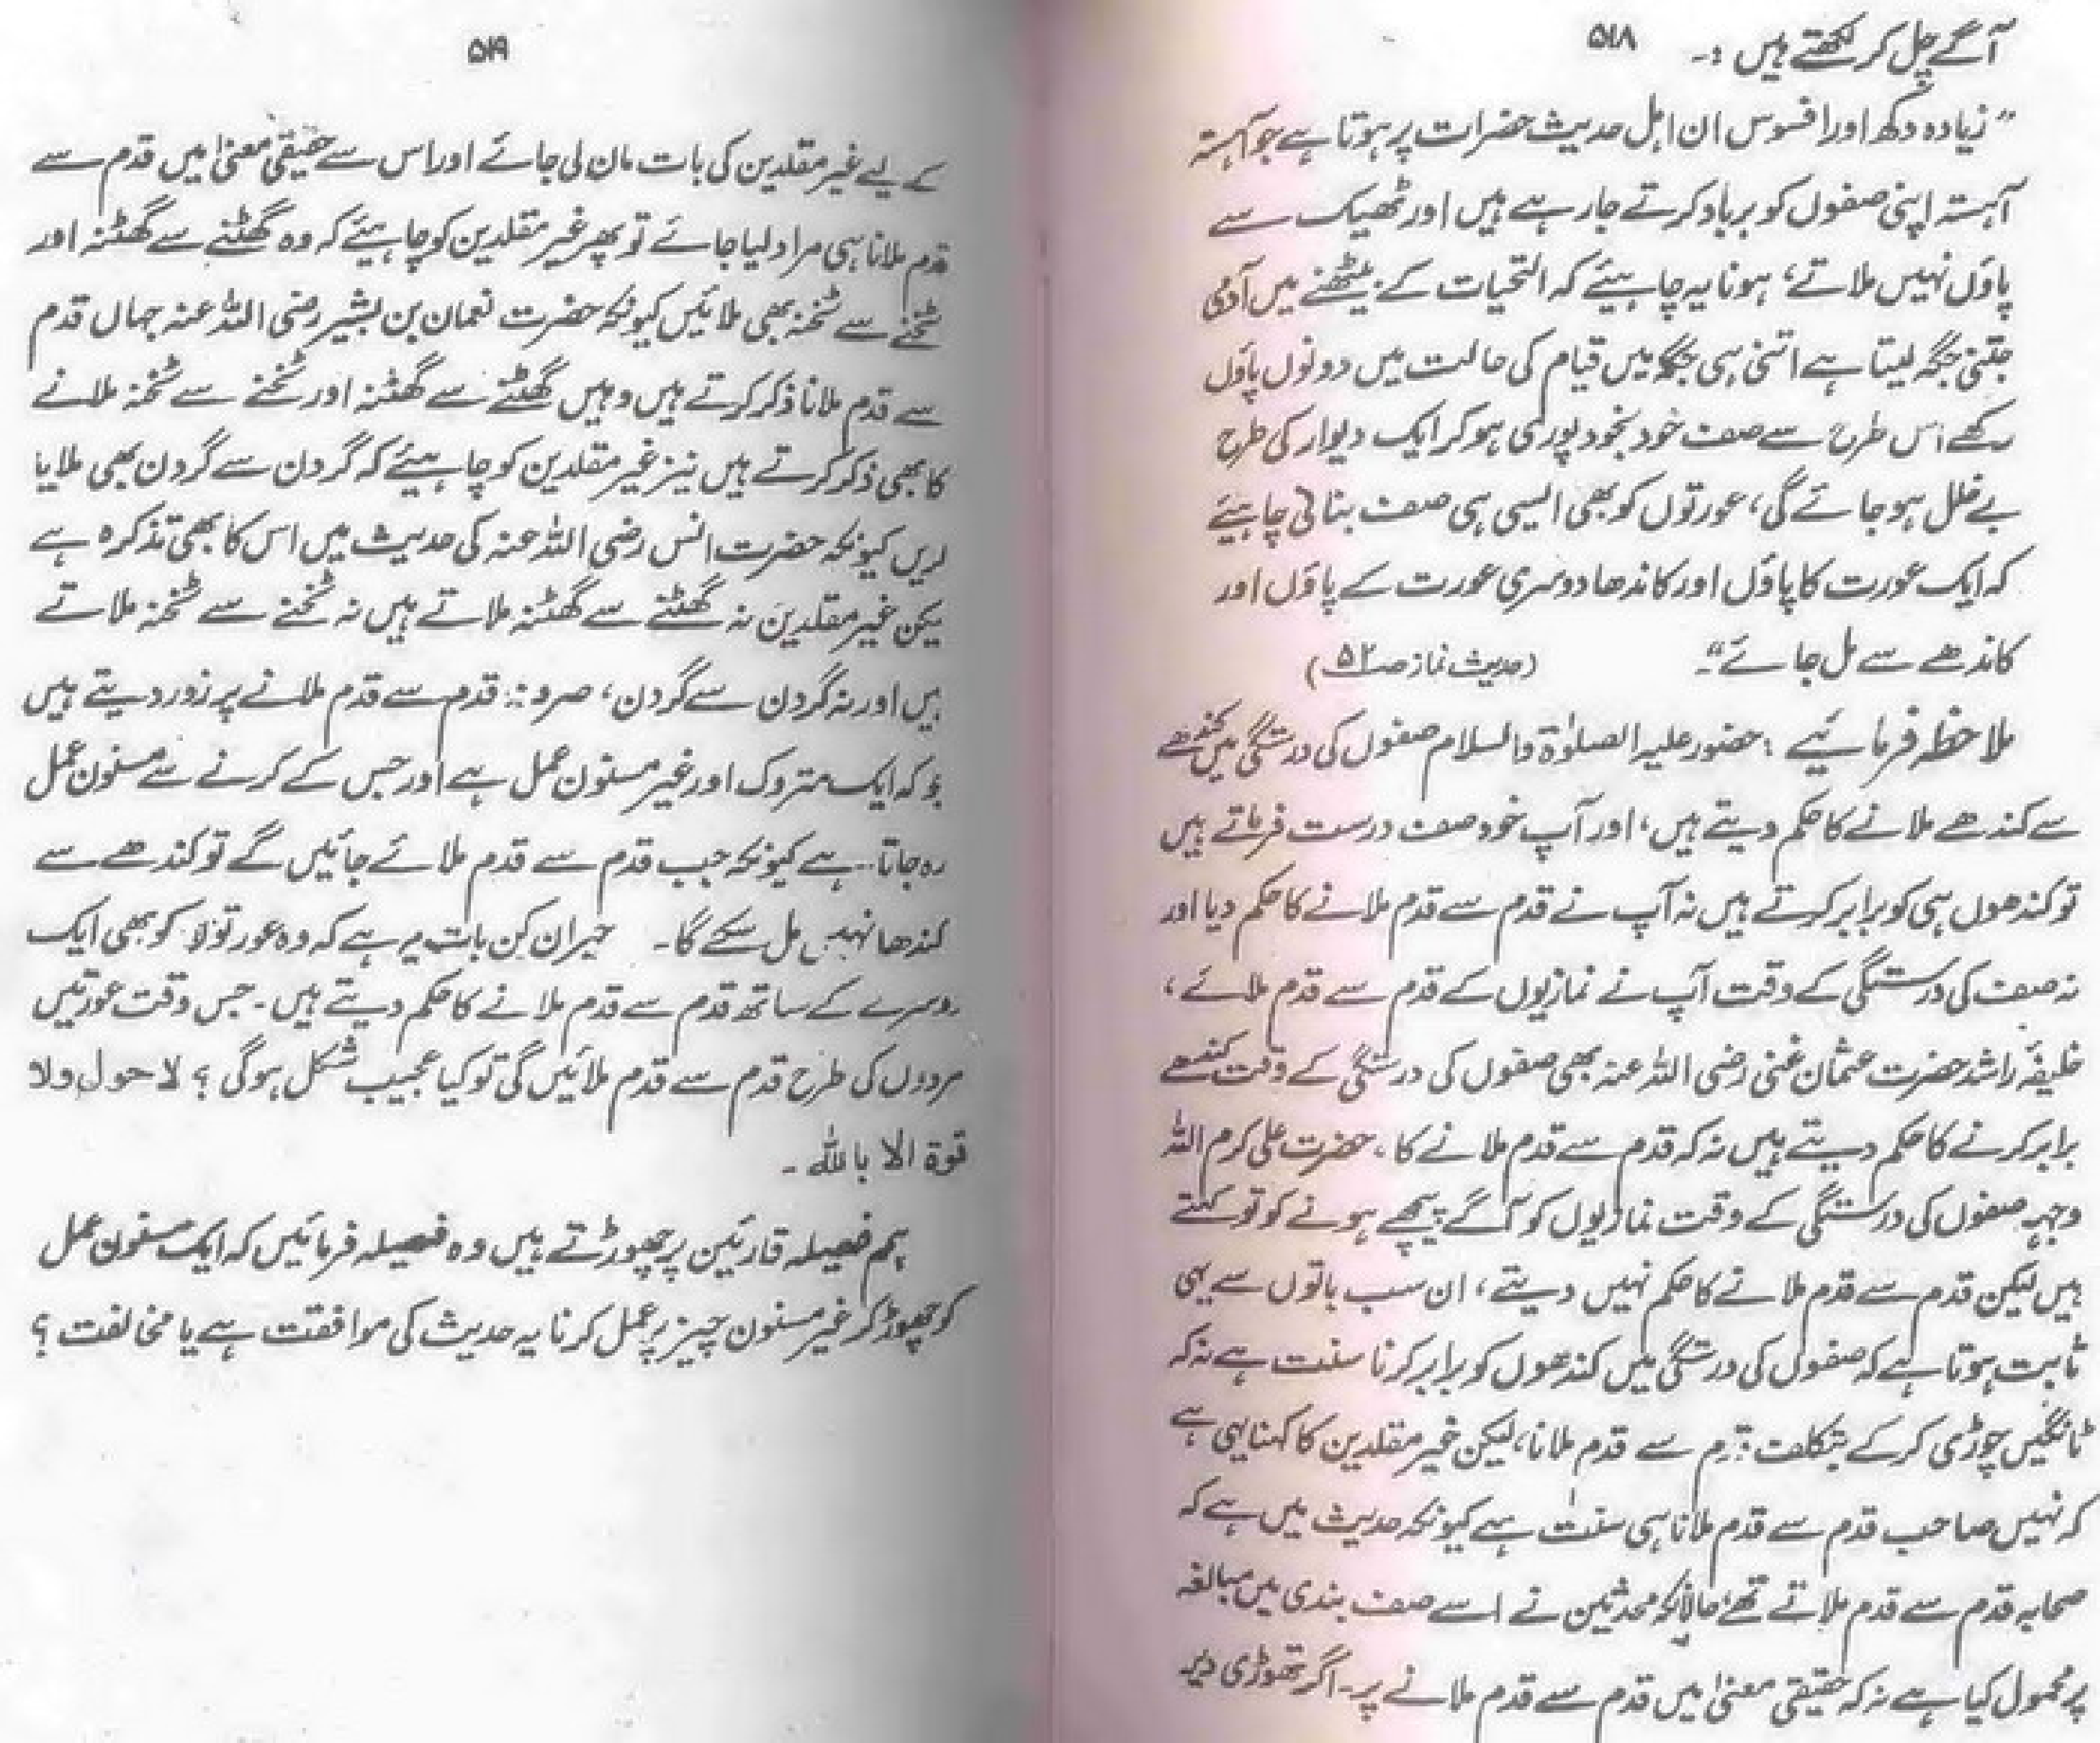 ۵۱۸
آگے چل کر لکھتے ہیں :۔
”زیادہ دکھ اور افسوس ان اہل حدیث حضرات پر ہوتا ہے جو آہستہ
آہستہ اپنی صفوں کو برباد کرتے جارہے ہیں اور ٹھیک سے
پاؤں نہیں ملاتے، ہونا یہ چاہیئے کہ التحیات کے بیٹھنے میں آدمی
جتنی جگہ لیتا ہے اتنی ہی جگہ میں قیام کی حالت میں دونوں پاؤں
رکھے اس طرح سے صف خود بخود پوری ہو کر ایک دیوار کی طرح
بے خلل ہو جائے گی، عورتوں کو بھی ایسی ہی صف بنانی چاہیئے
کہ ایک عورت کا پاؤں اور کاندھا دوسری عورت کے پاؤں اور
کاندھے سے مل جائے“۔ (حدیث نماز صـ ۵۲)
ملاحظہ فرمائیے : حضور علیہ الصلوٰۃ والسلام صفوں کی درستگی میں کندھے
سے کندھے ملانے کا حکم دیتے ہیں، اور آپ خود صف درست فرماتے ہیں
تو کندھوں ہی کو برابر کرتے ہیں نہ آپ نے قدم سے قدم ملانے کا حکم دیا اور
نہ صف کی درستگی کے وقت آپ نے نمازیوں کے قدم سے قدم ملائے،
خلیفۂ راشد حضرت عثمان غنی رضی اللہ عنہ بھی صفوں کی درستگی کے وقت کندھے
برابر کرنے کا حکم دیتے ہیں نہ کہ قدم سے قدم ملانے کا، حضرت علی کرم اللہ
وجہہ صفوں کی درستگی کے وقت نمازیوں کو آگے پیچھے ہونے کو تو کہتے
ہیں لیکن قدم سے قدم ملانے کا حکم نہیں دیتے، ان سب باتوں سے یہی
ثابت ہوتا ہے کہ صفوں کی درستگی میں کندھوں کو برابر کرنا سنت ہے نہ کہ
ٹانگیں چوڑی کرکے بتکلف قدم سے قدم ملانا، لیکن غیر مقلدین کا کہنا یہی ہے
کہ نہیں صاحب قدم سے قدم ملانا ہی سنت ہے کیونکہ حدیث میں ہے کہ
صحابہ قدم سے قدم ملاتے تھے، حالانکہ محدثین نے اسے صف بندی میں مبالغہ
پر محمول کیا ہے نہ کہ حقیقی معنیٰ میں قدم سے قدم ملانے پر۔ اگر تھوڑی دیر
۵۱۹
کے لیے غیر مقلدین کی بات مان لی جائے اور اس سے حقیقی معنیٰ میں قدم سے
قدم ملانا ہی مراد لیا جائے تو پھر غیر مقلدین کو چاہیئے کہ وہ گھٹنے سے گھٹنہ اور
ٹخنے سے ٹخنہ بھی ملائیں کیونکہ حضرت نعمان بن بشیر رضی اللہ عنہ جہاں قدم
سے قدم ملانا ذکر کرتے ہیں وہیں گھٹنے سے گھٹنہ اور ٹخنے سے ٹخنہ ملانے
کا بھی ذکر کرتے ہیں نیز غیر مقلدین کو چاہیئے کہ گردن سے گردن بھی ملایا
کریں کیونکہ حضرت انس رضی اللہ عنہ کی حدیث میں اس کا بھی تذکرہ ہے
لیکن غیر مقلدین نہ گھٹنے سے گھٹنہ ملاتے ہیں نہ ٹخنے سے ٹخنہ ملاتے
ہیں اور نہ گردن سے گردن، صرف قدم سے قدم ملانے پر زور دیتے ہیں
جو کہ ایک متروک اور غیر مسنون عمل ہے اور جس کے کرنے سے مسنون عمل
رہ جاتا ہے کیونکہ جب قدم سے قدم ملائے جائیں گے تو کندھے سے
کندھا نہیں مل سکے گا۔ حیران کن بات یہ ہے کہ وہ عورتوں کو بھی ایک
دوسرے کے ساتھ قدم سے قدم ملانے کا حکم دیتے ہیں۔ جس وقت عورتیں
مردوں کی طرح قدم سے قدم ملائیں گی تو کیا عجیب شکل ہوگی ؟ لا حول ولا
قوۃ الا باللہ ۔
ہم فیصلہ قارئین پر چھوڑتے ہیں وہ فیصلہ فرمائیں کہ ایک مسنون عمل
کو چھوڑ کر غیر مسنون چیز پر عمل کرنا یہ حدیث کی موافقت ہے یا مخالفت ؟